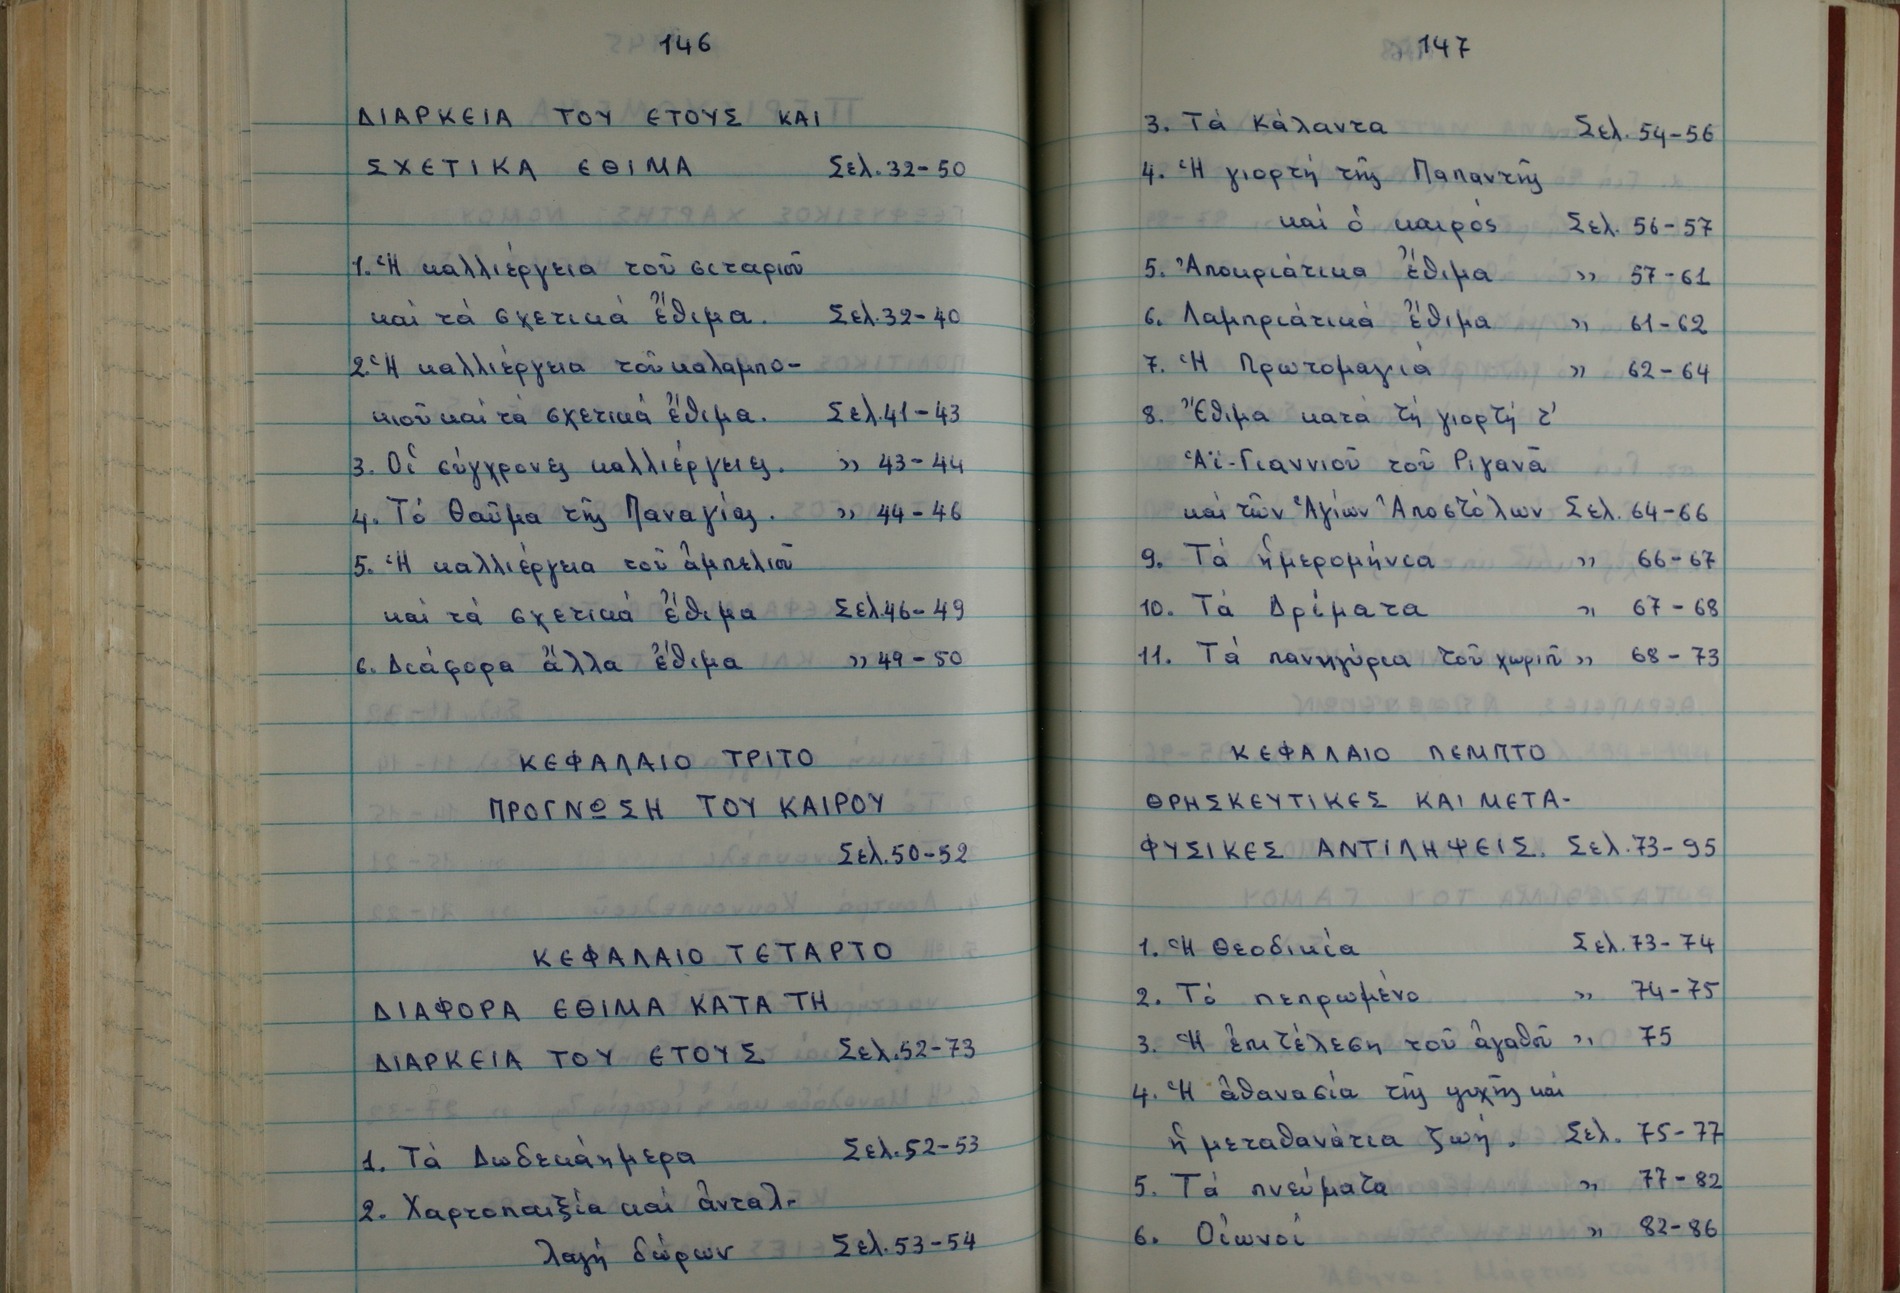 146
ΔΙΑΡΚΕΙΑ ΤΟΥ ΕΤΟΥΣ ΚΑΙ
ΣΧΕΤΙΚΑ ΕΘΙΜΑ Σελ. 32-50
1. Ἡ καλλιέργεια τοῦ σιταριοῦ
καί τά σχετικά ἔθιμα. Σελ. 32-40
2. Ἡ καλλιέργεια τοῦ καλαμπο-
κιοῦ καί τά σχετικά ἔθιμα. Σελ. 41-43
3. Οἱ σύγχρονες καλλιέργειες. ›› 43-44
4. Τό Θαῦμα τῆς Παναγίας. ›› 44-46
5. Ἡ καλλιέργεια τοῦ ἀμπελιοῦ
καί τά σχετικά ἔθιμα Σελ. 46-49
6. Διάφορα ἄλλα ἔθιμα ›› 49-50
ΚΕΦΑΛΑΙΟ ΤΡΙΤΟ
ΠΡΟΓΝΩΣΗ ΤΟΥ ΚΑΙΡΟΥ
Σελ. 50-52
ΚΕΦΑΛΑΙΟ ΤΕΤΑΡΤΟ
ΔΙΑΦΟΡΑ ΕΘΙΜΑ ΚΑΤΑ ΤΗ
ΔΙΑΡΚΕΙΑ ΤΟΥ ΕΤΟΥΣ Σελ. 52-73
1. Τά Δωδεκάημερα Σελ. 52-53
2. Χαρτοπαιξία καί ἀνταλ-
λαγή δώρων Σελ. 53-54
147
3. Τά Κάλαντα Σελ. 54-56
4. Ἡ γιορτή τῆς Παπαντῆς
καί ὁ καιρός Σελ. 56-57
5. Ἀποκριάτικα ἔθιμα ›› 57-61
6. Λαμπριάτικά ἔθιμα ›› 61-62
7. Ἡ Πρωτομαγιά ›› 62-64
8. Ἔθιμα κατά τή γιορτή τ'
Ἁϊ-Γιαννιοῦ τοῦ Ριγανᾶ
καί τῶν Ἁγίων Ἀποστόλων Σελ. 64-66
9. Τά ἡμερομήνια ›› 66-67
10. Τά Δρίματα ›› 67-68
11. Τά πανηγύρια τοῦ χωριοῦ ›› 68-73
ΚΕΦΑΛΑΙΟ ΠΕΜΠΤΟ
ΘΡΗΣΚΕΥΤΙΚΕΣ ΚΑΙ ΜΕΤΑ-
ΦΥΣΙΚΕΣ ΑΝΤΙΛΗΨΕΙΣ. Σελ. 73-95
1. Ἡ Θεοδικία Σελ. 73-74
2. Τό πεπρωμένο ›› 74-75
3. Ἡ ἐκτέλεση τοῦ ἀγαθοῦ ›› 75
4. Ἡ ἀθανασία τῆς ψυχῆς καί
ἡ μεταθανάτια ζωή. Σελ. 75-77
5. Τά πνεύματα ›› 77-82
6. Οἰωνοί ›› 82-86